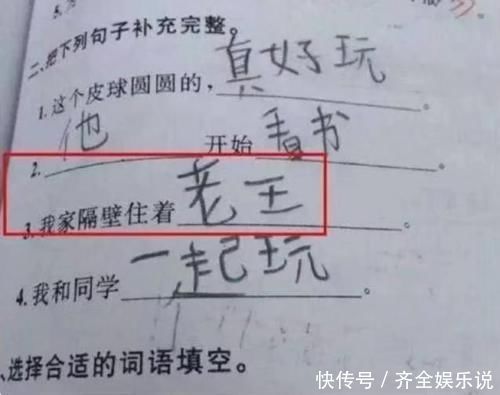 二、把下列句子补充完整。
1.这个皮球圆圆的,真好玩。
2.他开始看书。
3.我家隔壁住着老王。
4.我和同学一起玩。
、选择合适的词语填空。
快传号/齐全娱乐说